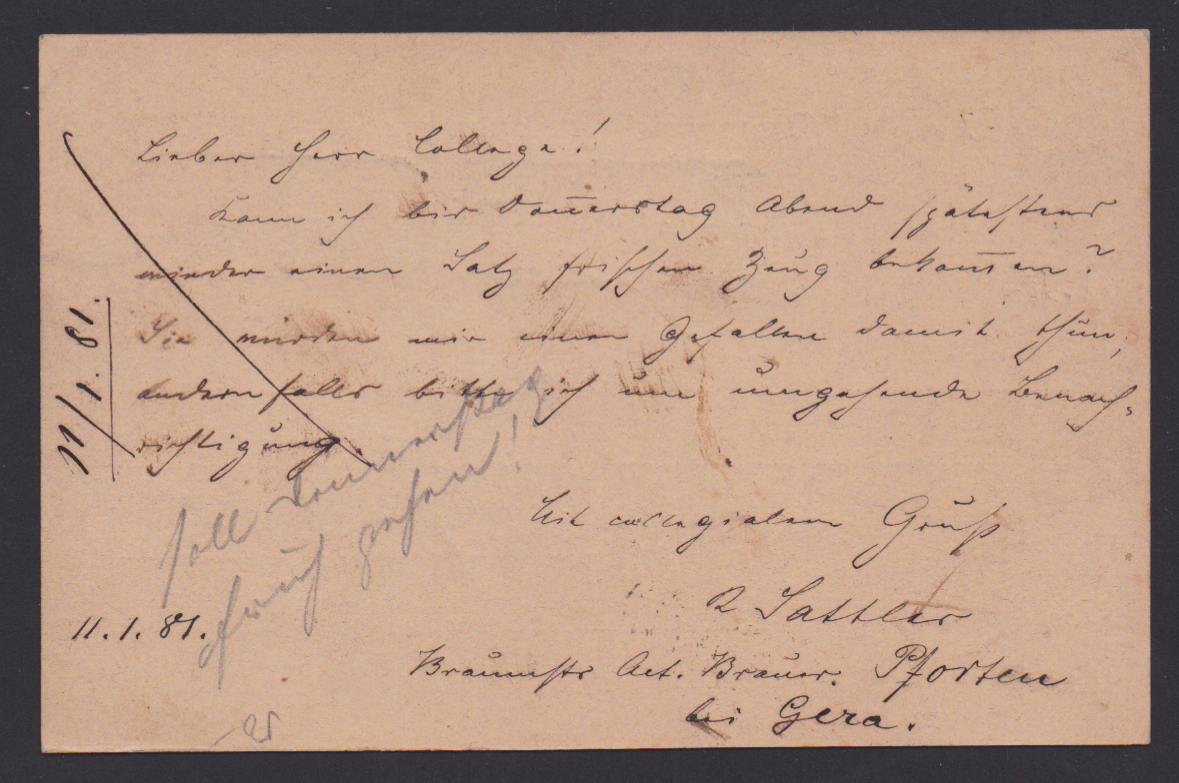 Lieber Herr College!
Kann ich bis Donnerstag Abend spätestens
wieder einen Satz frischen Zeug bekommen?
Sie würden mir einen Gefallen damit thun,
andernfalls bitte ich um umgehende Benach-
richtigung.
Mit collegialem Gruß
R Sattler
Braumstr Act. Brauer. Pforten
bei Gera.
11.1.81.
11/1.81.
soll Donnerstag
früh gehen!